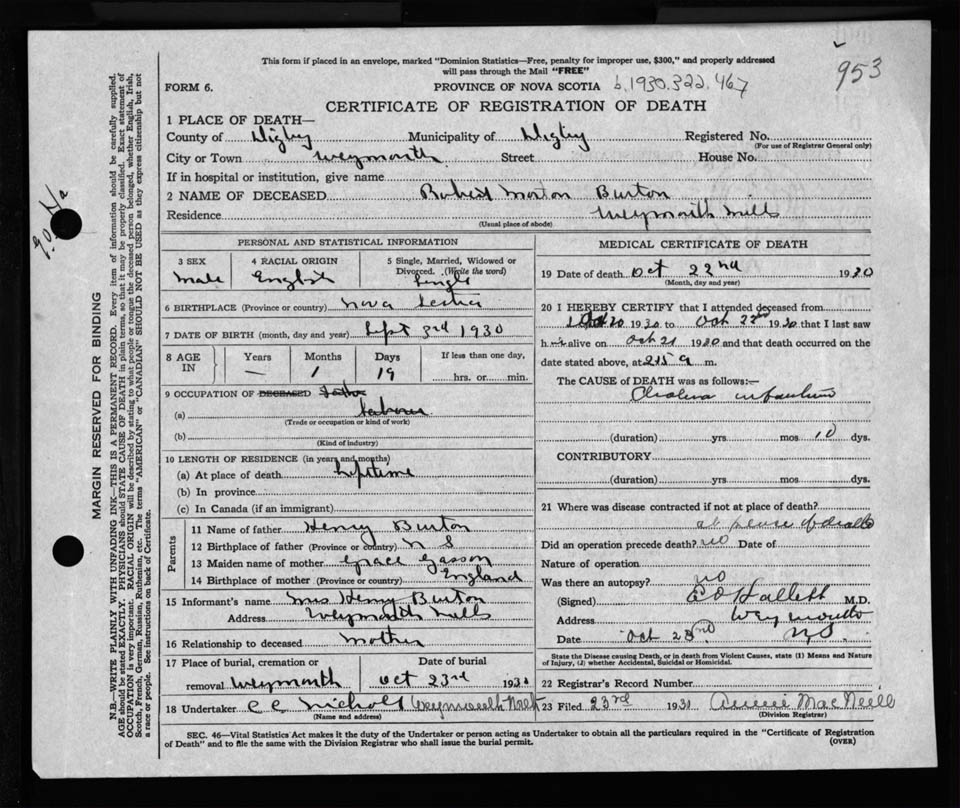 This form if placed in an envelope, marked "Dominion Statistics—Free, penalty for improper use, $300," and properly addressed
will pass through the Mail "FREE"
953
FORM 6.
PROVINCE OF NOVA SCOTIA
b.1930.322.467
CERTIFICATE OF REGISTRATION OF DEATH
1 PLACE OF DEATH—
County of Digby Municipality of Digby Registered No.
(For use of Registrar General only)
City or Town Weymouth Street House No.
If in hospital or institution, give name
2 NAME OF DECEASED Robert Morton Burton
Residence Weymouth Mills
(Usual place of abode)
PERSONAL AND STATISTICAL INFORMATION
3 SEX 4 RACIAL ORIGIN 5 Single, Married, Widowed or
Divorced. (Write the word)
Male English Single
6 BIRTHPLACE (Province or country) Nova Scotia
7 DATE OF BIRTH (month, day and year) Sept 3rd 1930
8 AGE IN Years Months Days If less than one day,
— 1 19 hrs. or min.
9 OCCUPATION OF DECEASED Father
(a) Laborer
(Trade or occupation or kind of work)
(b)
(Kind of industry)
10 LENGTH OF RESIDENCE (in years and months)
(a) At place of death lifetime
(b) In province
(c) In Canada (if an immigrant)
Parents
11 Name of father Henry Burton
12 Birthplace of father (Province or country) N S
13 Maiden name of mother Grace
14 Birthplace of mother (Province or country) England
15 Informant's name Mrs Henry Burton
Address Weymouth Mills
16 Relationship to deceased Mother
17 Place of burial, cremation or Date of burial
removal Weymouth Oct 23rd 1930
18 Undertaker C C Nichols Weymouth North
(Name and address)
MEDICAL CERTIFICATE OF DEATH
19 Date of death Oct 22nd 1930
(Month, day and year)
20 I HEREBY CERTIFY that I attended deceased from
Oct 20 1930 to Oct 22nd 1930 that I last saw
h alive on Oct 21 1930 and that death occurred on the
date stated above, at 2.15 a m.
The CAUSE OF DEATH was as follows:—
Cholera infantum
(duration) yrs mos 10 dys.
CONTRIBUTORY
(duration) yrs mos dys.
21 Where was disease contracted if not at place of death?
at place of death
Did an operation precede death? no Date of
Nature of operation
Was there an autopsy? no
(Signed) E O Hallett M.D.
Address Weymouth
Date Oct 23rd N.S.
State the Disease causing Death, or in death from Violent Causes, state (1) Means and Nature
of Injury, (2) whether Accidental, Suicidal or Homicidal.
22 Registrar's Record Number
23 Filed 23rd 1931 Annie MacNeill
(Division Registrar)
SEC. 46—Vital Statistics Act makes it the duty of the Undertaker or person acting as Undertaker to obtain all the particulars required in the "Certificate of Registration
of Death" and to file the same with the Division Registrar who shall issue the burial permit.
(OVER)
MARGIN RESERVED FOR BINDING
N.B.—WRITE PLAINLY WITH UNFADING INK—THIS IS A PERMANENT RECORD. Every item of information should be carefully supplied.
AGE should be stated EXACTLY. PHYSICIANS should STATE CAUSE OF DEATH in plain terms, so that it may be properly classified. Exact statement of
OCCUPATION is very important. RACIAL ORIGIN will be described by stating to what people or tongue the deceased person belonged, whether English, Irish,
Scotch, French, German, Russian, Ruthenian, etc. The terms "AMERICAN" or "CANADIAN" SHOULD NOT BE USED as they express citizenship but not
a race or people. See instructions on back of Certificate.